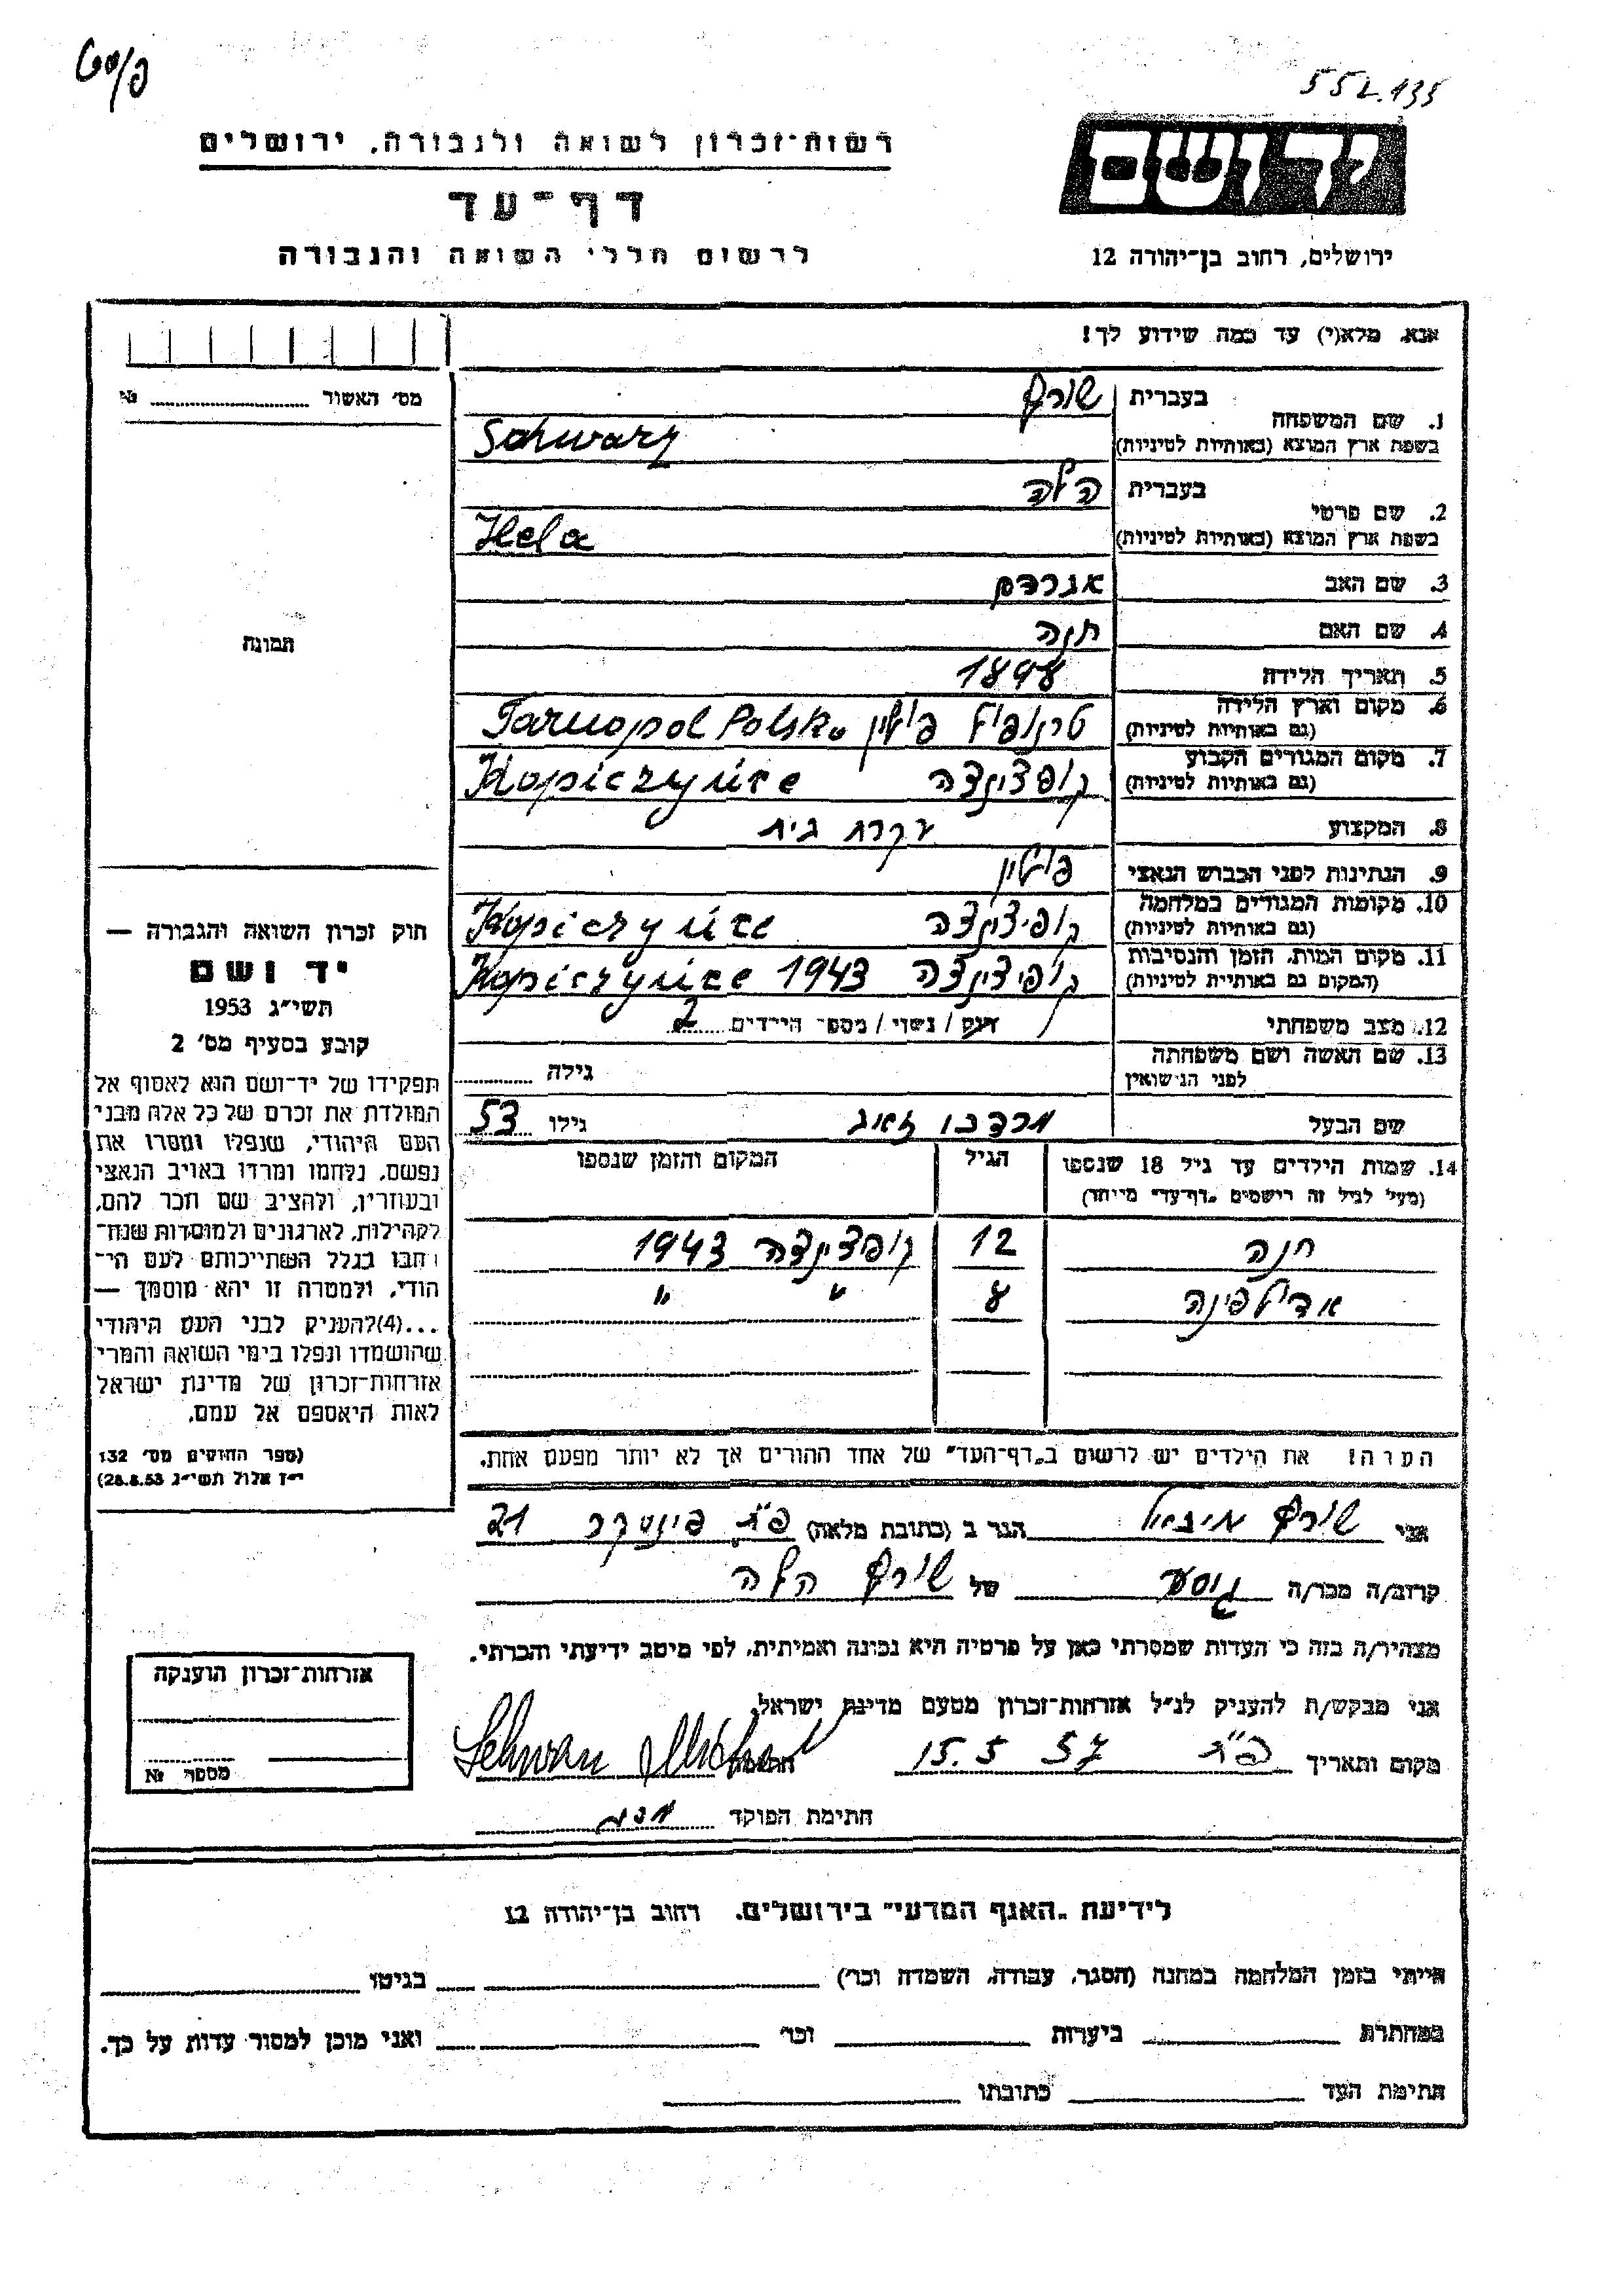 552.135
יד ושם
רשות-זכרון לשואה ולגבורה, ירושלים
דף-עד
לרשום חללי השואה והגבורה
ירושלים, רחוב בן-יהודה 12
אנא, מלא(י) עד כמה שידוע לך!
מס' האשור № 
1. שם המשפחה בעברית שורץ
בשפת ארץ המוצא (באותיות לטיניות) Schwarz
2. שם פרטי בעברית הלה
בשפת ארץ המוצא (באותיות לטיניות) Hela
3. שם האב אברהם
4. שם האם חנה
תמונה
5. תאריך הלידה 1898
6. מקום וארץ הלידה (גם באותיות לטיניות) טרנופול פולין Tarnopol Polska
7. מקום המגורים הקבוע (גם באותיות לטיניות) קופצינצה Kopiczyńce
8. המקצוע עקרת בית
9. הנתינות לפני הכבוש הנאצי פולין
10. מקומות המגורים במלחמה (גם באותיות לטיניות) קופיצינצה Kopiczyńce
11. מקום המות, הזמן והנסיבות (המקום גם באותיות לטיניות) קופיצינצה 1943 Kopiczyńce
12. מצב משפחתי רווק / נשוי / מספר הילדים 2
13. שם האשה ושם משפחתה לפני הנישואין גילה
שם הבעל מרדכי זאב גילו 53
14. שמות הילדים עד גיל 18 שנספו הגיל המקום והזמן שנספו
(מעל לגיל זה רישמים „דף-עד" מייחד)
חנה 12 קופצינצה 1943
8 " "
הערה! את הילדים יש לרשום ב„דף-העד" של אחד ההורים אך לא יותר מפעם אחת.
חוק זכרון השואה והגבורה —
יד ושם
תשי"ג 1953
קובע בסעיף מס' 2
תפקידו של יד-ושם הוא לאסוף אל
המולדת את זכרם של כל אלה מבני
העם היהודי, שנפלו ומסרו את
נפשם, נלחמו ומרדו באויב הנאצי
ובעוזריו, ולהציב שם וזכר להם,
לקהילות, לארגונים ולמוסדות שנח-
רבו בגלל השתייכותם לעם הי-
הודי, ולמטרה זו יהא מוסמך —
...(4)להעניק לבני העם היהודי
שהושמדו ונפלו בימי השואה והמרי
אזרחות-זכרון של מדינת ישראל
לאות היאספם אל עמם.
(ספר החוקים מס' 132
י"ז אלול תשי"ג 28.8.53)
אני שורץ מיכאל הגר ב (כתובת מלאה) פ"ת פינסקר 21
קרוב/ה מכר/ה גיסה של שורץ הלה
מצהיר/ה בזה כי העדות שמסרתי כאן על פרטיה היא נכונה ואמיתית, לפי מיטב ידיעתי והכרתי.
אני מבקש/ת להעניק לנ"ל אזרחות-זכרון מטעם מדינת ישראל.
מקום ותאריך פ"ת 15.5 57 חתימה Schwarz Michal
חתימת הפוקד
אזרחות-זכרון הוענקה
מספר №
לידיעת „האגף המדעי" בירושלים, רחוב בן-יהודה 12
הייתי בזמן המלחמה במחנה (הסגר, עבודה, השמדה וכו') בגיטו
במחתרת ביערות וכו' ואני מוכן למסור עדות על כך.
חתימת העד כתובתו